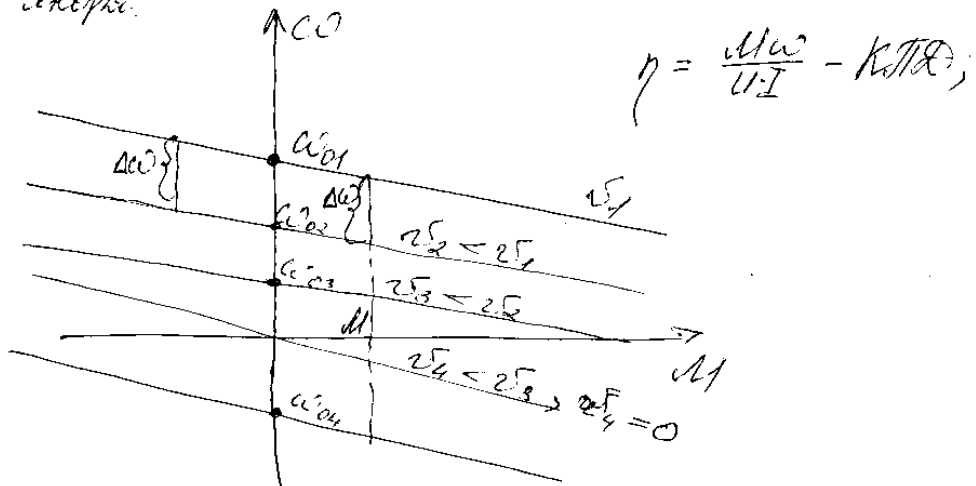 ω
η = Mω / U·I - КПД;
ω₀₁
Δω
Δω
U₁
ω₀₂
U₂ < U₁
ω₀₃
U₃ < U₂
M
M
U₄ < U₃
U₄ = 0
ω₀₄